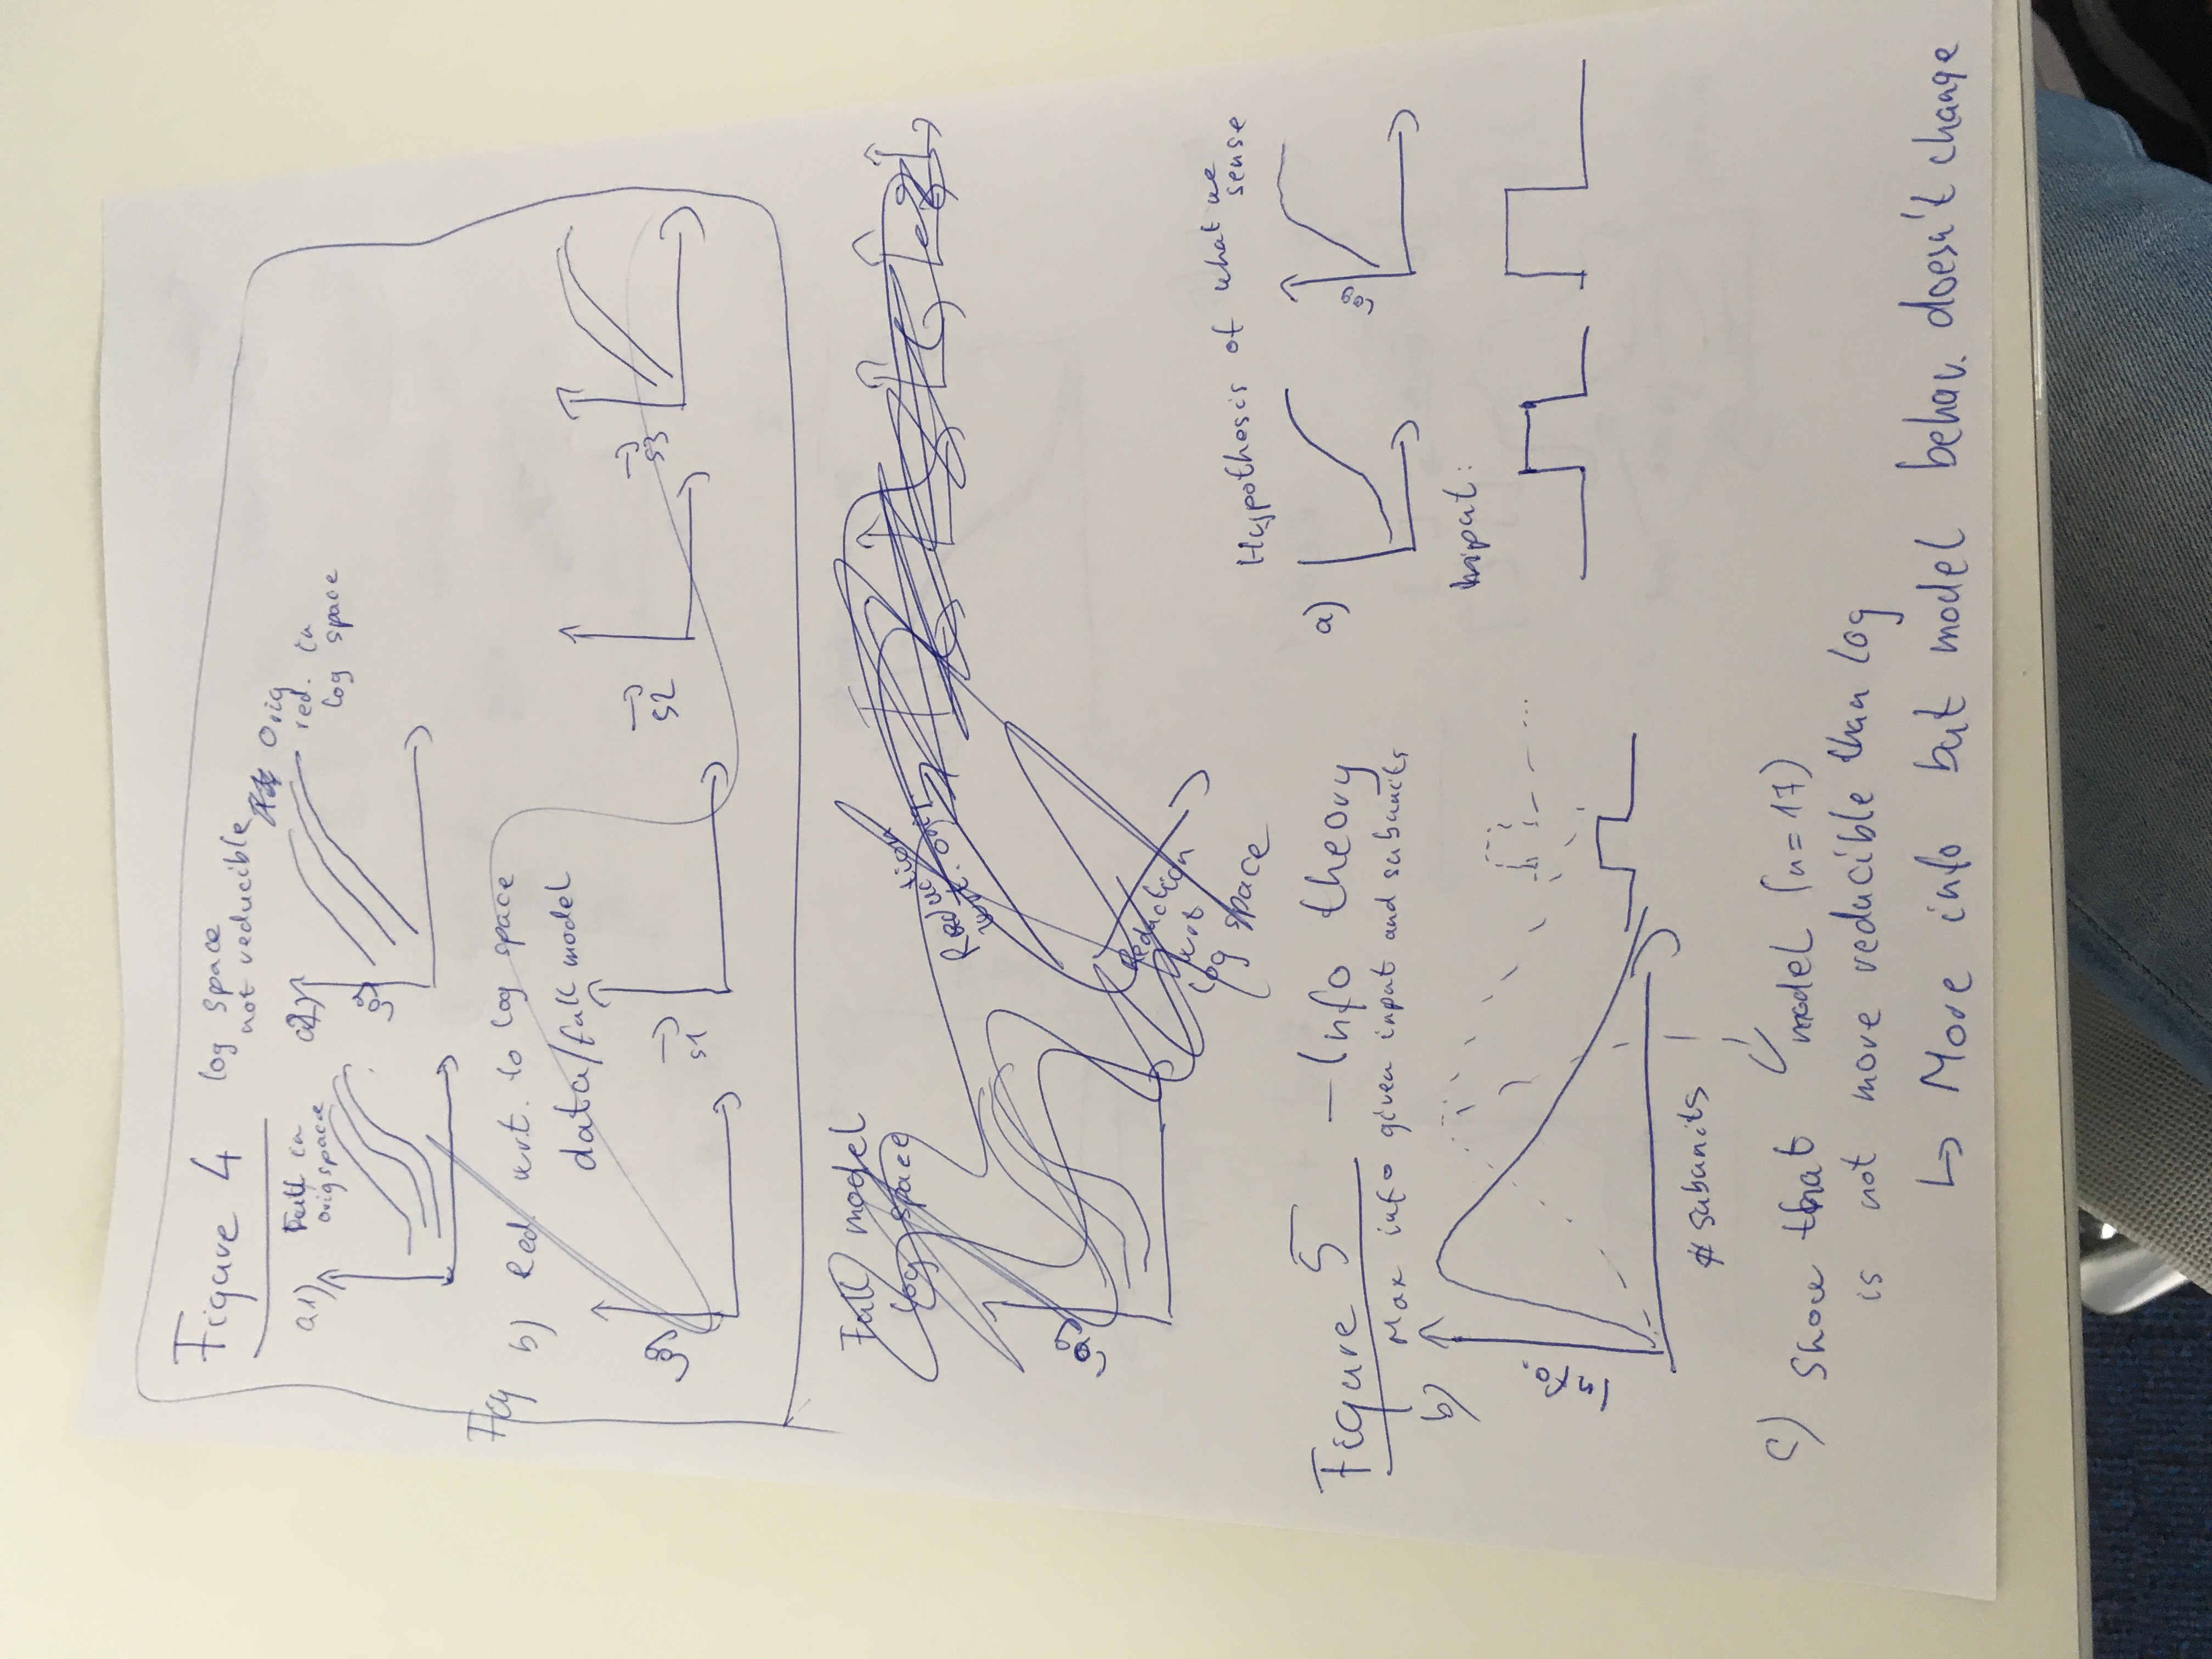 Figure 4
log space
not reducible
a1)
Full in
orig space
a2)
Orig
red. in
log space
log
Fig
b) Red. w.r.t. to log space
data/full model
log
s1
s2
s3
Full model
log space
log
Reduction
w.r.t. orig.
Reduction
wrt
log space
Hypothesis of what we
sense
Figure 5 - Info theory
a)
log
Max info given input and subunits
b)
Info.
# subunits
Input:
c) Show that model (n=17)
is not more reducible than log
↳ More info but model behav. doesn't change